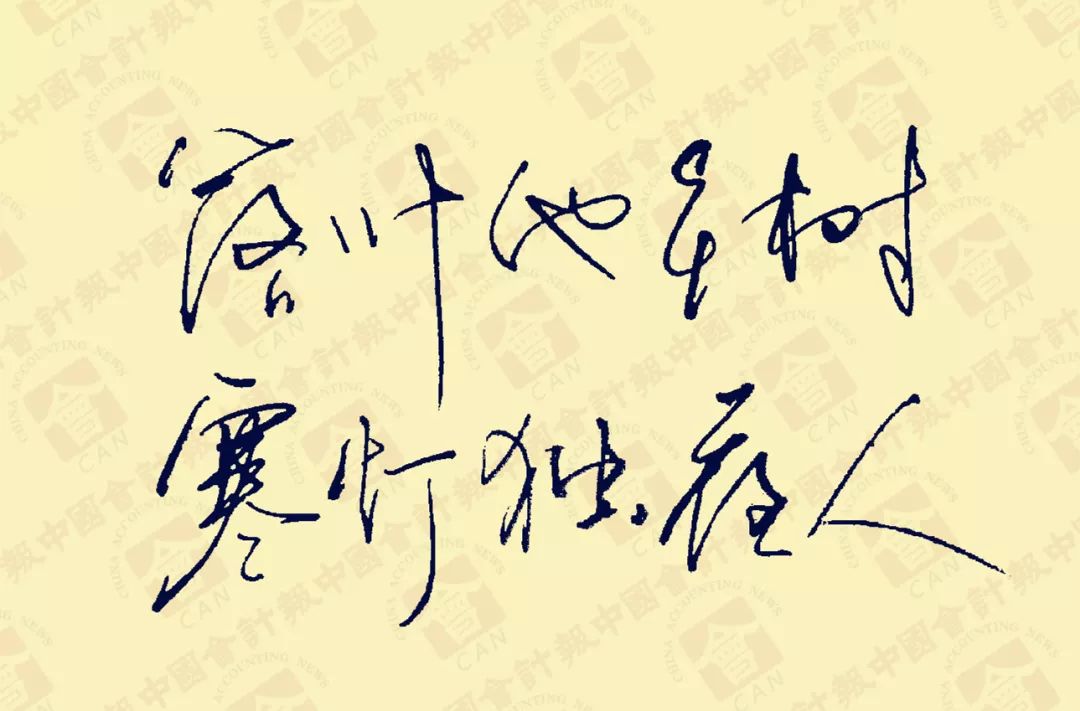 落叶他乡树
寒灯独夜人
中國會計報
CHINA ACCOUNTING NEWS
CAN